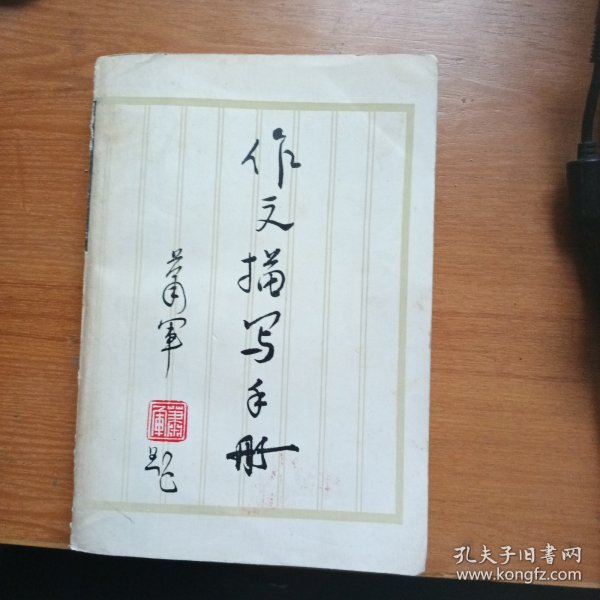 作文描写手册
蕭軍
蕭軍
题
孔夫子旧書网
www.kongfz.com